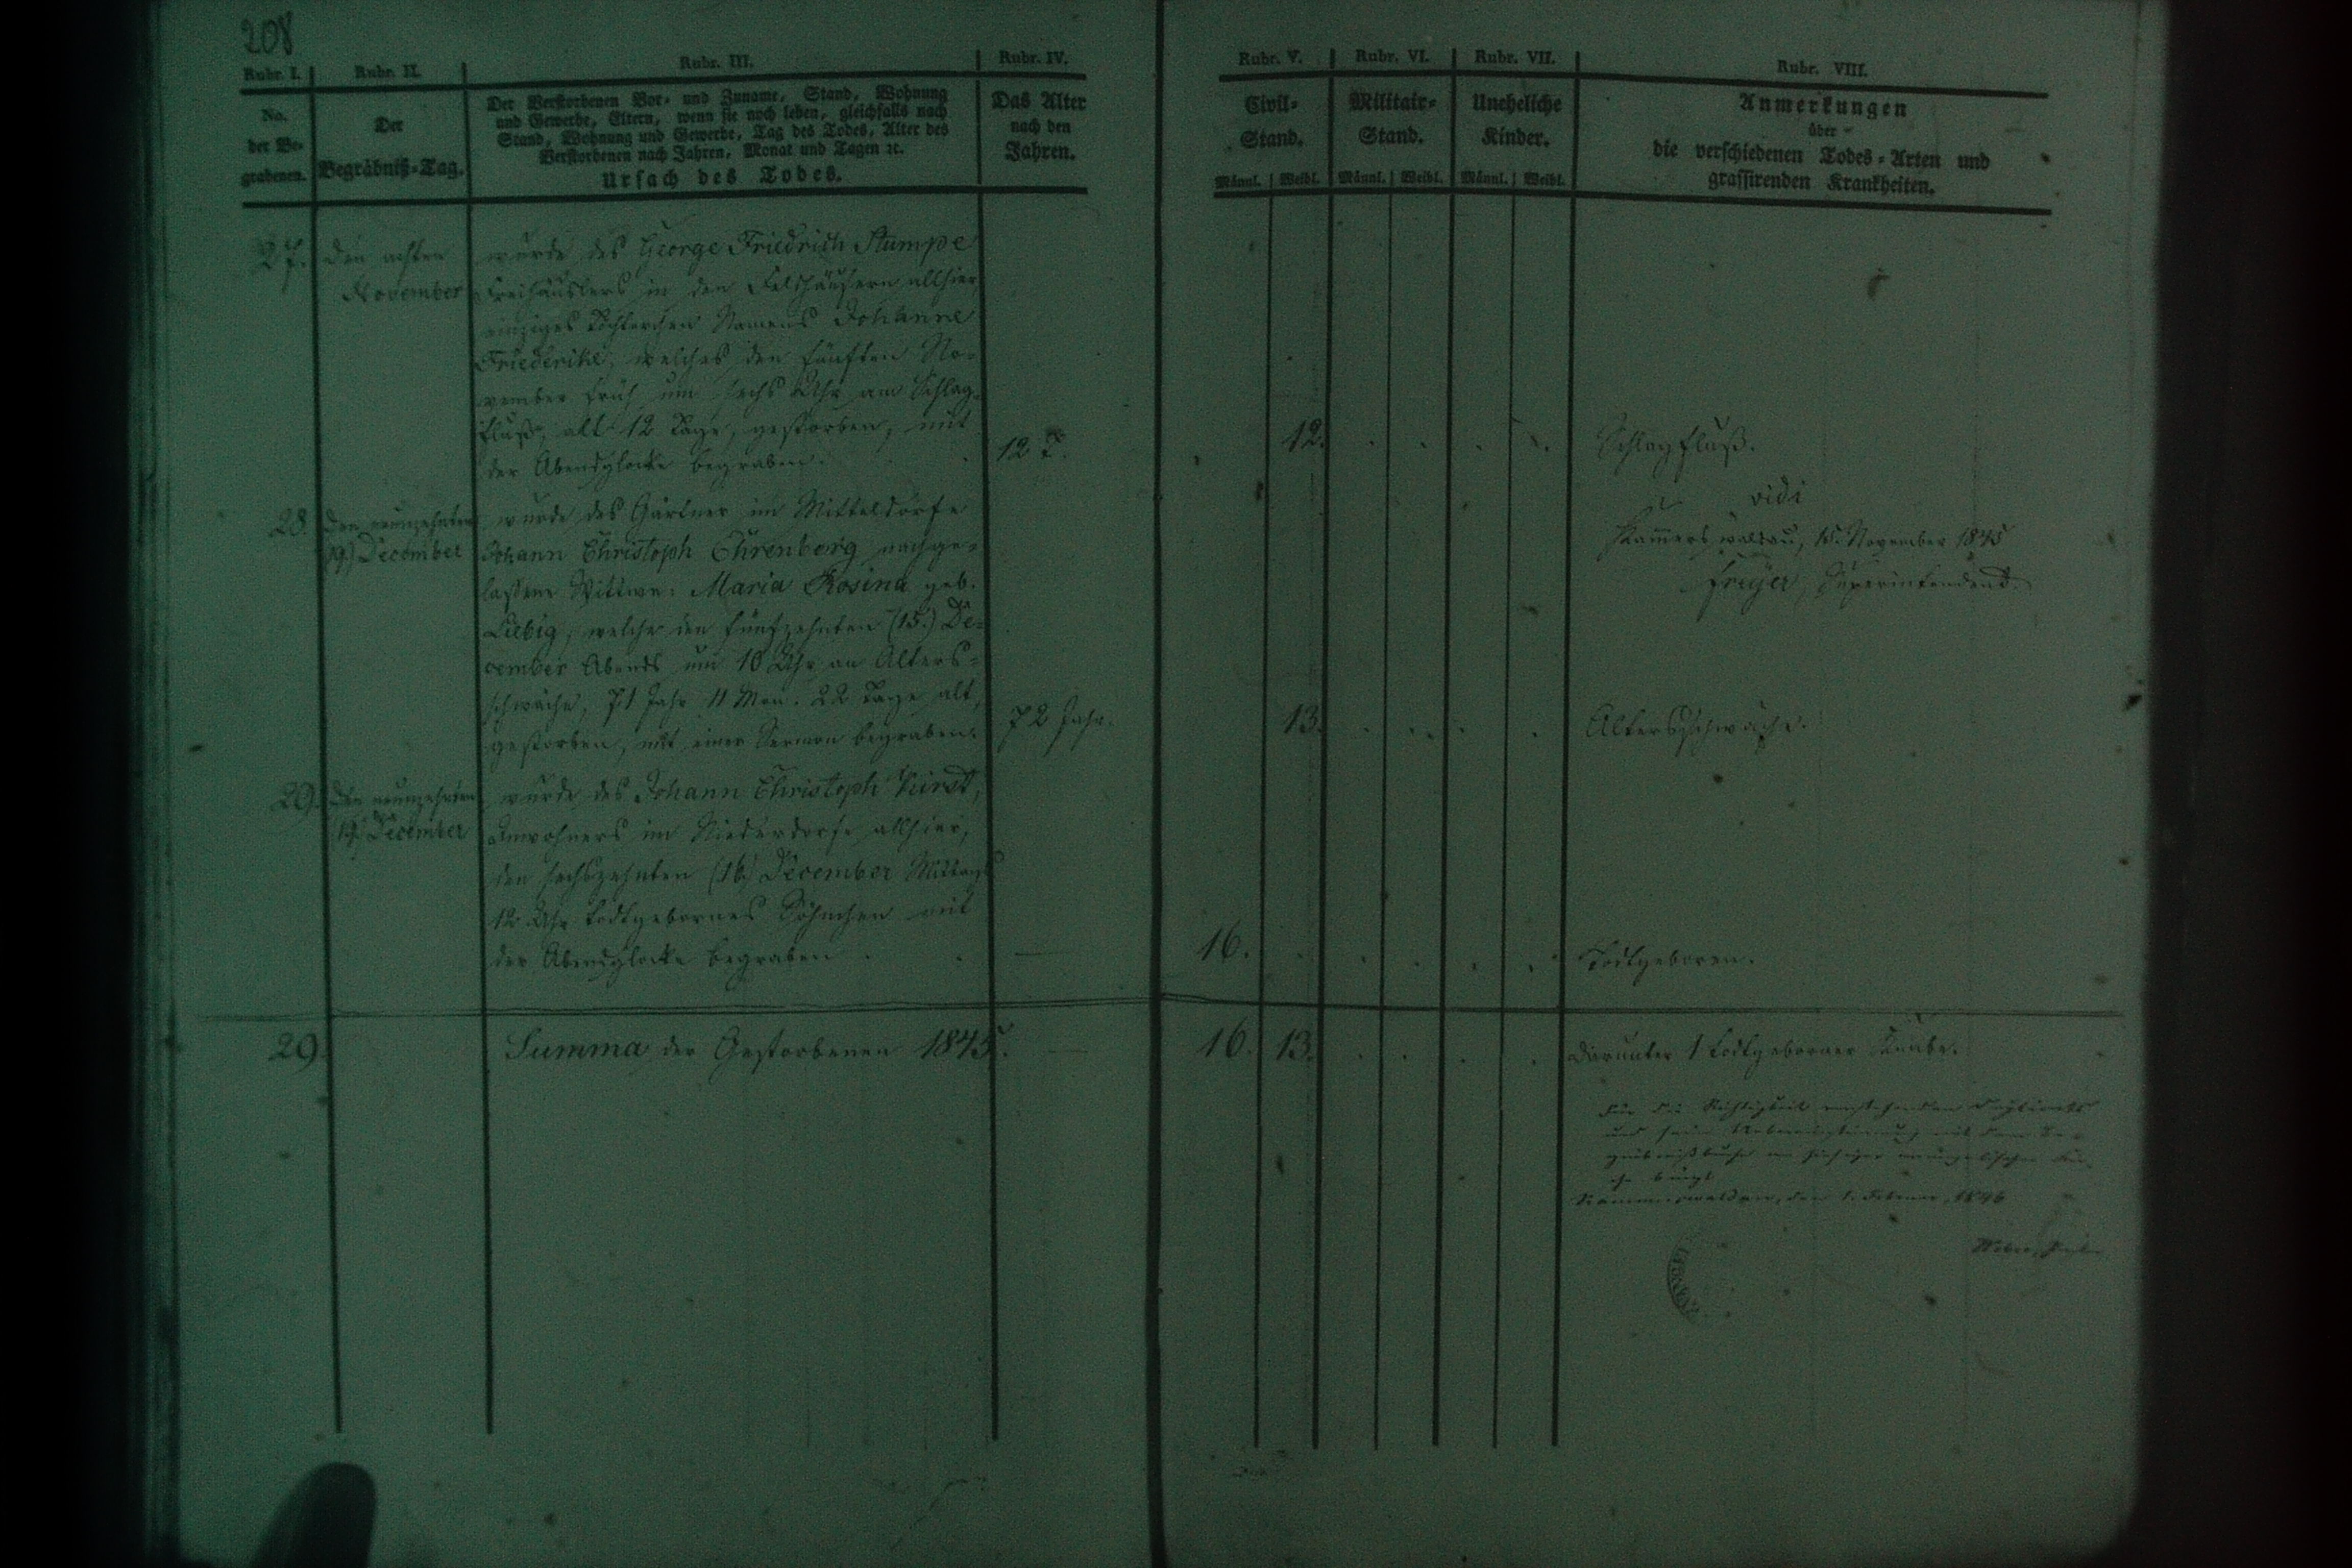 208
Rubr. I.
No.
der Be-
grabenen.
Rubr. II.
Der
Begräbniß-Tag.
Rubr. III.
Der Verstorbenen Vor- und Zuname, Stand, Wohnung
und Gewerbe, Eltern, wenn sie noch leben, gleichfalls nach
Stand, Wohnung und Gewerbe, Tag des Todes, Alter des
Verstorbenen nach Jahren, Monat und Tagen ꝛc.
Ursach des Todes.
Rubr. IV.
Das Alter
nach den
Jahren.
Rubr. V.
Civil-
Stand.
Männl. Weibl.
Rubr. VI.
Militair-
Stand.
Männl. Weibl.
Rubr. VII.
Uneheliche
Kinder.
Männl. Weibl.
Rubr. VIII.
Anmerkungen
über
die verschiedenen Todes-Arten und
grassirenden Krankheiten.
27.
den achten
November
wurde des George Friedrich Stumpe
Freihäuslers in den Feldhäusern allhier,
einziges Töchterchen Namens Johanne
Friederike, welches den fünften No-
vember früh um sechs Uhr am Schlag-
fluß, alt 12 Tage, gestorben, mit
der Abendglocke begraben.
12 T.
12.
Schlagfluß.
vidi
Kammerswaldau, 15. November 1845
Superintendent.
28.
den neunzehnten
(19.) December
wurde des Gärtner im Mitteldorfe
Johann Christoph Ehrenberg nachge-
lassene Wittwe: Maria Rosina geb.
Liebig, welche den fünfzehnten (15.) De-
cember Abends um 10 Uhr an Alters-
schwäche, 71 Jahr 11 Mon. 22 Tage alt,
gestorben, mit einer Sermon begraben.
72 Jahr.
13.
Altersschwäche.
29.
den neunzehnten
19. December
wurde des Johann Christoph
Inwohners im Niederdorfe allhier,
den sechszehnten (16.) December Mittags
12 Uhr todtgebornes Söhnchen mit
der Abendglocke begraben.
16.
Todtgeboren.
29.
Summa der Gestorbenen 1845.
16. 13.
Darunter 1 todtgeborner Knabe.
Für die Richtigkeit
und seine Uebereinstimmung mit dem Be-
gräbnißbuche
Kammerswaldau, den 1. Februar 1846